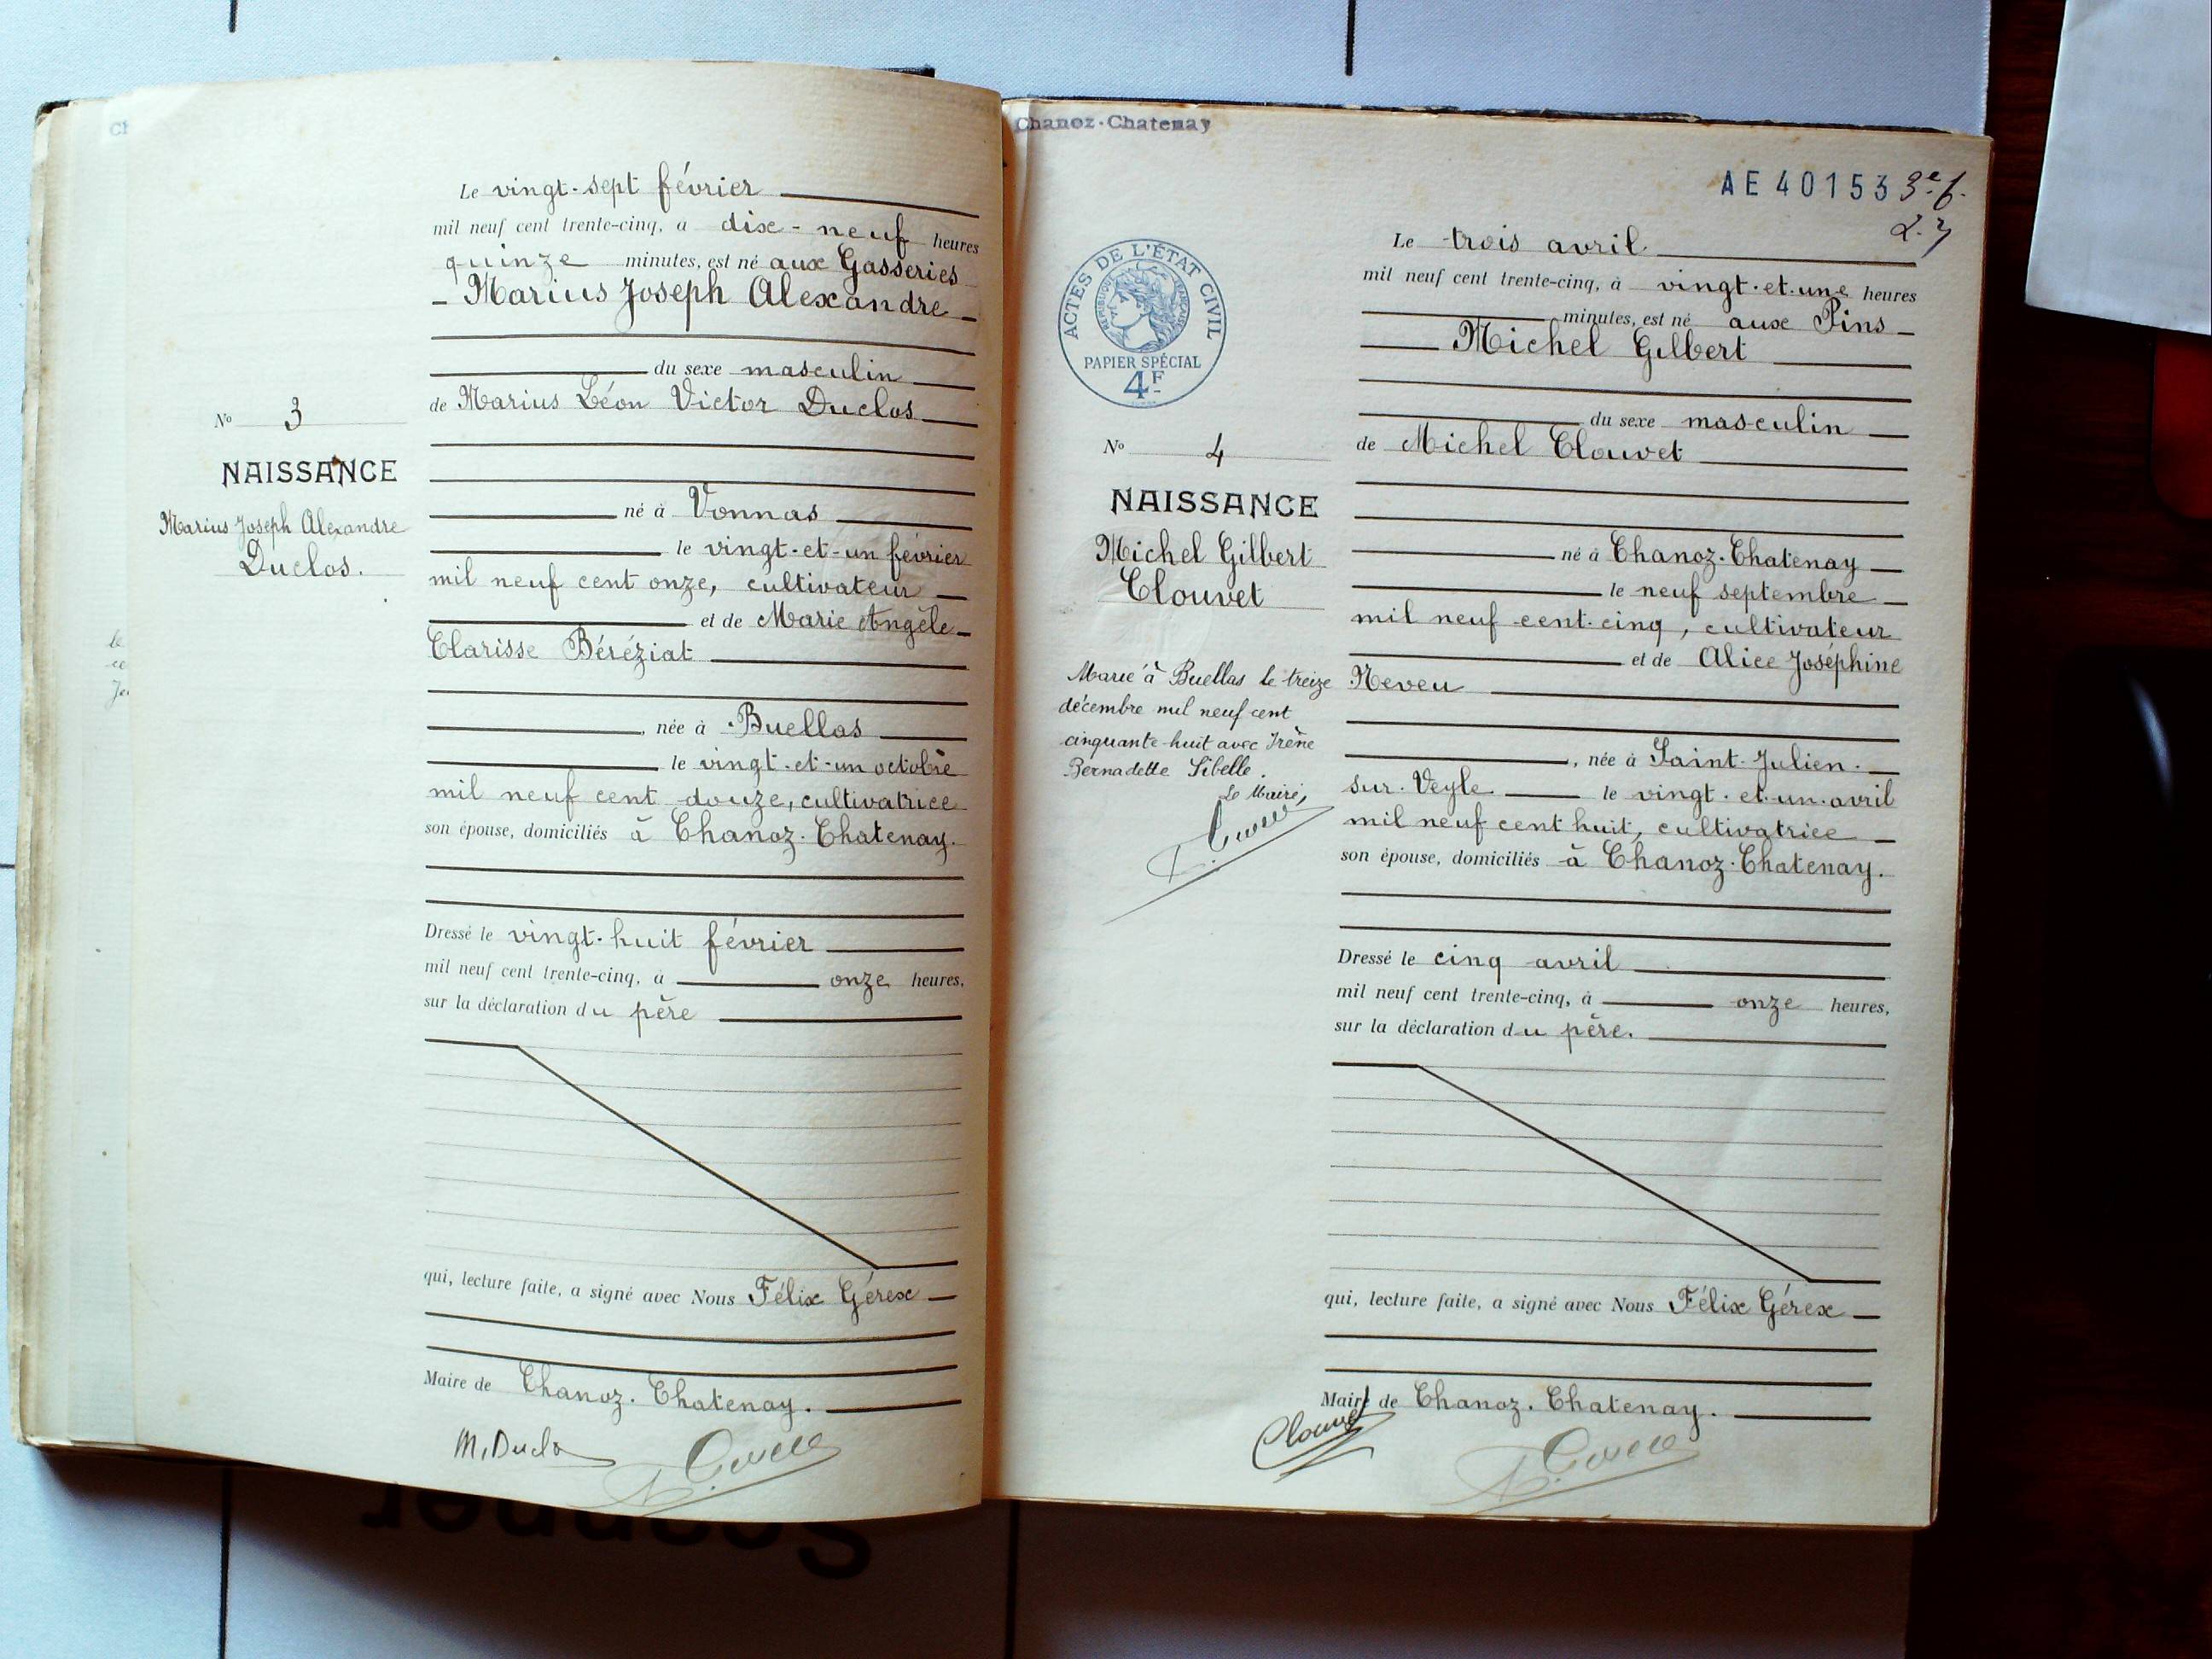 Le vingt-sept février
mil neuf cent trente-cinq, à dix-neuf heures
quinze minutes, est né aux Gasseries
Marius Joseph Alexandre
du sexe masculin
de Marius Léon Victor Duclos
né à Vonnas
le vingt-et-un février
mil neuf cent onze, cultivateur
et de Marie Angèle
Clarisse Béréziat
, née à Buellas
le vingt-et-un octobre
mil neuf cent douze, cultivatrice
son épouse, domiciliés à Chanoz-Chatenay.
Dressé le vingt-huit février
mil neuf cent trente-cinq, à onze heures,
sur la déclaration du père
qui, lecture faite, a signé avec Nous Félix Gérex
Maire de Chanoz-Chatenay.
M. Duclo
No 3
NAISSANCE
Marius Joseph Alexandre
Duclos.
Chanoz-Chatenay
AE 40153 3e f.
ACTES DE L'ÉTAT CIVIL
RÉPUBLIQUE FRANÇAISE
PAPIER SPÉCIAL
4F
No 4
NAISSANCE
Michel Gilbert
Clouvet
Marié à Buellas le treize
décembre mil neuf cent
cinquante-huit avec Irène
Bernadette Sibelle.
Le Maire,
Le trois avril
mil neuf cent trente-cinq, à vingt-et-une heures
minutes, est né aux Pins
Michel Gilbert
du sexe masculin
de Michel Clouvet
né à Chanoz-Chatenay
le neuf septembre
mil neuf cent-cinq, cultivateur
et de Alice Joséphine
Neveu
, née à Saint-Julien-
sur-Veyle le vingt-et-un-avril
mil neuf cent huit, cultivatrice
son épouse, domiciliés à Chanoz-Chatenay.
Dressé le cinq avril
mil neuf cent trente-cinq, à onze heures,
sur la déclaration du père.
qui, lecture faite, a signé avec Nous Félix Gérex
Maire de Chanoz-Chatenay.
Clouvet
Scanner